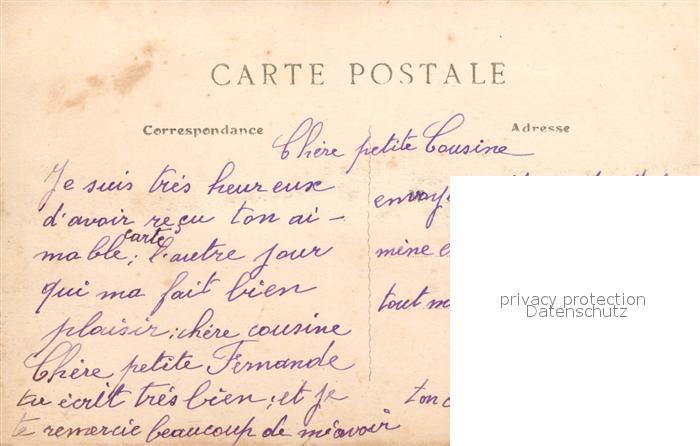 CARTE POSTALE
Correspondance
Adresse
Chère petite Cousine
Je suis très heureux
d'avoir reçu ton ai-
mable, carte l'autre jour
qui ma fait bien
plaisir; chère cousine
Chère petite Fernande
tu écrit très bien; et je
te remercie beaucoup de m'avoir
envoy
mène
tout m
ton
privacy protection
Datenschutz